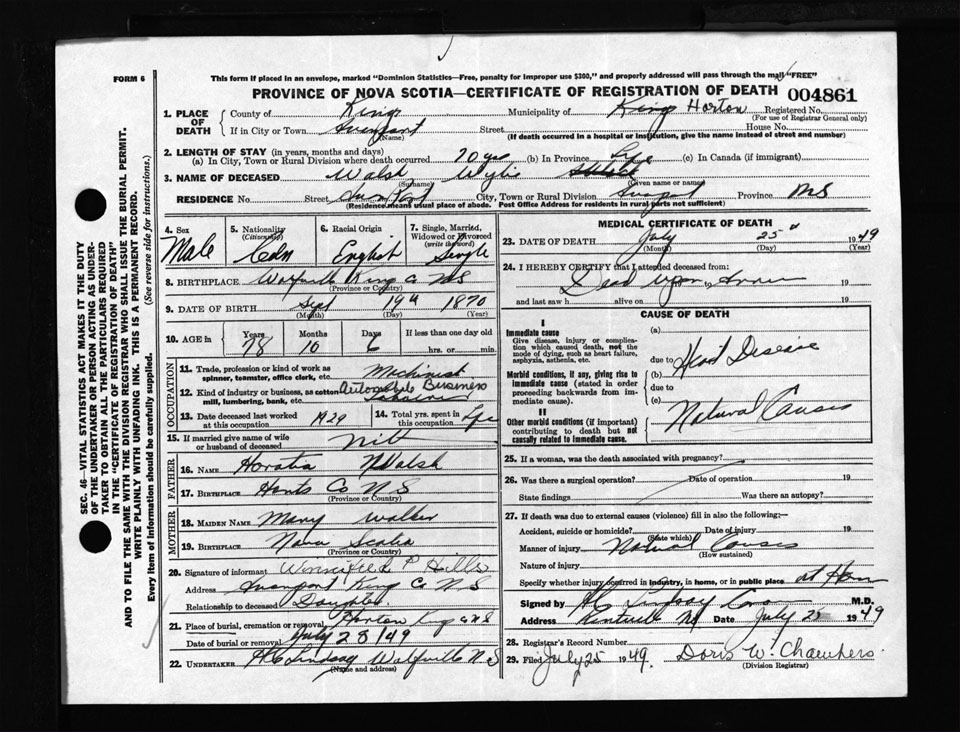 FORM 6
This form if placed in an envelope, marked "Dominion Statistics—Free, penalty for improper use $300," and properly addressed will pass through the mail "FREE"
PROVINCE OF NOVA SCOTIA—CERTIFICATE OF REGISTRATION OF DEATH 004861
1. PLACE OF DEATH County of Kings Municipality of Kings Horton Registered No.
(For use of Registrar General only)
If in City or Town Street House No.
(Name) (If death occurred in a hospital or institution, give the name instead of street and number)
2. LENGTH OF STAY (in years, months and days)
(a) In City, Town or Rural Division where death occurred 70 yrs (b) In Province Life (c) In Canada (if immigrant)
3. NAME OF DECEASED Walsh Wylie
(Surname) (Given name or names)
RESIDENCE No. Street City, Town or Rural Division Province NS
(Residence means usual place of abode. Post Office Address for residents in rural parts not sufficient)
4. Sex Male
5. Nationality (Citizenship) Cdn
6. Racial Origin English
7. Single, Married, Widowed or Divorced (write the word) Single
8. BIRTHPLACE Kings Co NS
(Province or Country)
9. DATE OF BIRTH Sept 19th 1870
(Month) (Day) (Year)
10. AGE in Years 78 Months 10 Days 6 If less than one day old hrs. or min.
OCCUPATION
11. Trade, profession or kind of work as spinner, teamster, office clerk, etc. Machinist
12. Kind of industry or business, as cotton mill, lumbering, bank, etc. Automobile Business
13. Date deceased last worked at this occupation 1929
14. Total yrs. spent in this occupation Life
15. If married give name of wife or husband of deceased
FATHER
16. NAME Walsh
17. BIRTHPLACE Hants Co N S
(Province or Country)
MOTHER
18. MAIDEN NAME Mary Walker
19. BIRTHPLACE Nova Scotia
(Province or Country)
20. Signature of informant Winnifield P Hills
Address Kings Co N S
Relationship to deceased Daughter
21. Place of burial, cremation or removal Horton Kings Co NS
Date of burial or removal July 28/49
22. UNDERTAKER H C Lindsay Wolfville N S
(Name and address)
MEDICAL CERTIFICATE OF DEATH
23. DATE OF DEATH July 25" 1949
(Month) (Day) (Year)
24. I HEREBY CERTIFY that I attended deceased from:
Dead upon 19
and last saw h alive on 19
CAUSE OF DEATH
I
Immediate cause
Give disease, injury or complication which caused death, not the mode of dying, such as heart failure, asphyxia, asthenia, etc.
(a)
due to Heart Disease
Morbid conditions, if any, giving rise to immediate cause (stated in order proceeding backwards from immediate cause).
(b)
due to
(c)
II
Other morbid conditions (if important) contributing to death but not causally related to immediate cause.
Natural Causes
25. If a woman, was the death associated with pregnancy?
26. Was there a surgical operation? Date of operation 19
State findings Was there an autopsy?
27. If death was due to external causes (violence) fill in also the following:—
Accident, suicide or homicide? Date of injury 19
(State which)
Manner of injury Natural Causes
(How sustained)
Nature of injury
Specify whether injury occurred in industry, in home, or in public place at Home
Signed by H C Lindsay M.D.
Address Kentville NS Date July 25 1949
28. Registrar's Record Number
29. Filed July 25 1949. Doris W. Chambers.
(Division Registrar)
SEC. 46—VITAL STATISTICS ACT MAKES IT THE DUTY
OF THE UNDERTAKER OR PERSON ACTING AS UNDER-
TAKER TO OBTAIN ALL THE PARTICULARS REQUIRED
IN THE "CERTIFICATE OF REGISTRATION OF DEATH"
AND TO FILE THE SAME WITH THE DIVISION REGISTRAR WHO SHALL ISSUE THE BURIAL PERMIT.
WRITE PLAINLY WITH UNFADING INK. THIS IS A PERMANENT RECORD.
Every item of information should be carefully supplied. (See reverse side for instructions.)